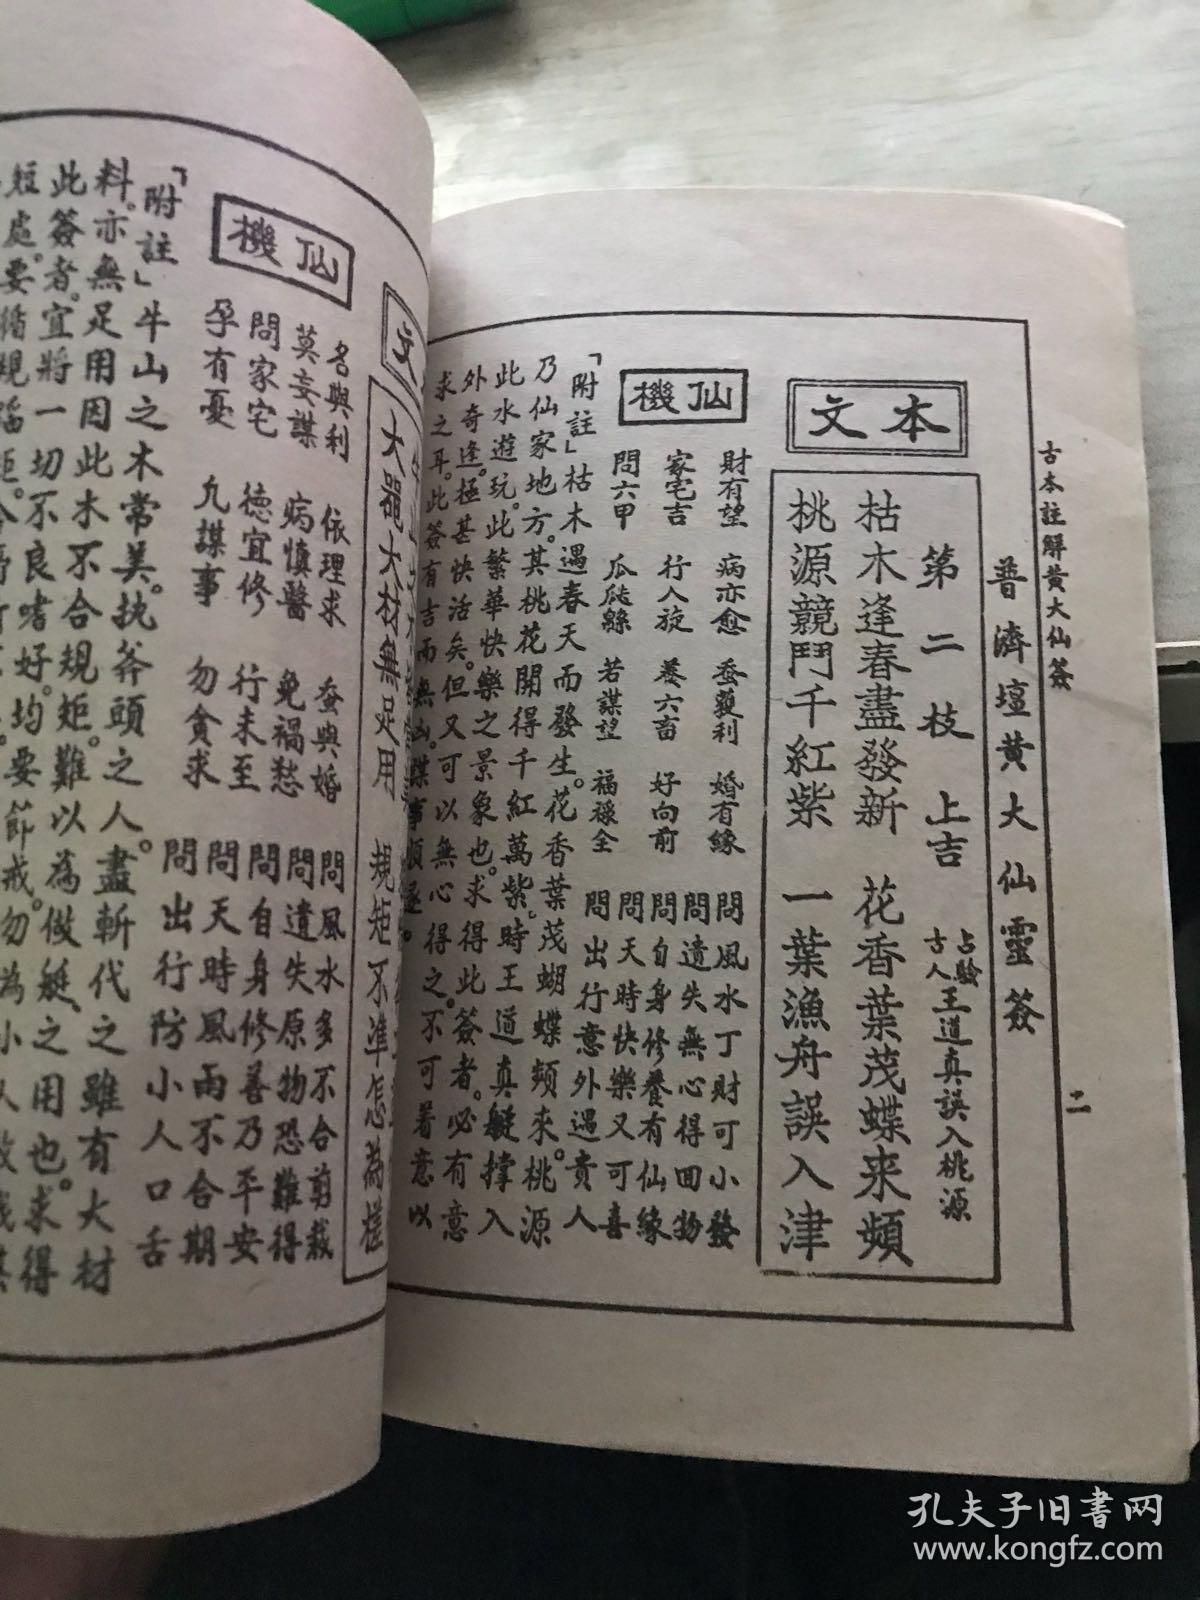 古本註解黃大仙簽
二
普濟壇黃大仙靈簽
本文
第二枝 上吉 占驗古人王道真誤入桃源
枯木逢春盡發新 花香葉茂蝶来頻
桃源競鬥千紅紫 一葉漁舟誤入津
仙機
財有望 病亦愈 蚕獲利 婚有緣
家宅吉 行人旋 養六畜 好向前
問六甲 瓜瓞緜 若謀望 福祿全
問風水丁財可小發
問遺失無心得回物
問自身修養有仙緣
問天時快樂又可喜
問出行意外遇貴人
「附註」枯木遇春天而發生。花香葉茂蝴蝶頻來。桃源
乃仙家地方。其桃花開得千紅萬紫。時王道真艇撑入
此水遊玩。此繁華快樂之景象也。求得此簽者。必有意
外奇逢。極甚快活矣。但又可以無心得之。不可着意以
求之耳。此簽有吉而無凶。謀事順遂。
大器大材無足用 規矩不準怎為樣
仙機
名與利 依理求 蚕與婚 免禍愁
莫妄謀 病慎醫
問家宅 德宜修 行未至
孕有憂 九謀事 勿貪求
問風水多不合剪裁
問遺失原物恐難得
問自身修善乃平安
問天時風雨不合期
問出行防小人口舌
「附註」牛山之木常美。执斧頭之人。盡斬代之雖有大材
料。亦無足用因此木不合規矩。難以為做艇、之用也。求得
此簽者。宜將一切不良嗜好。均要節戒。勿為小人
短處。要循規蹈矩。
孔夫子旧書网
www.kongfz.com